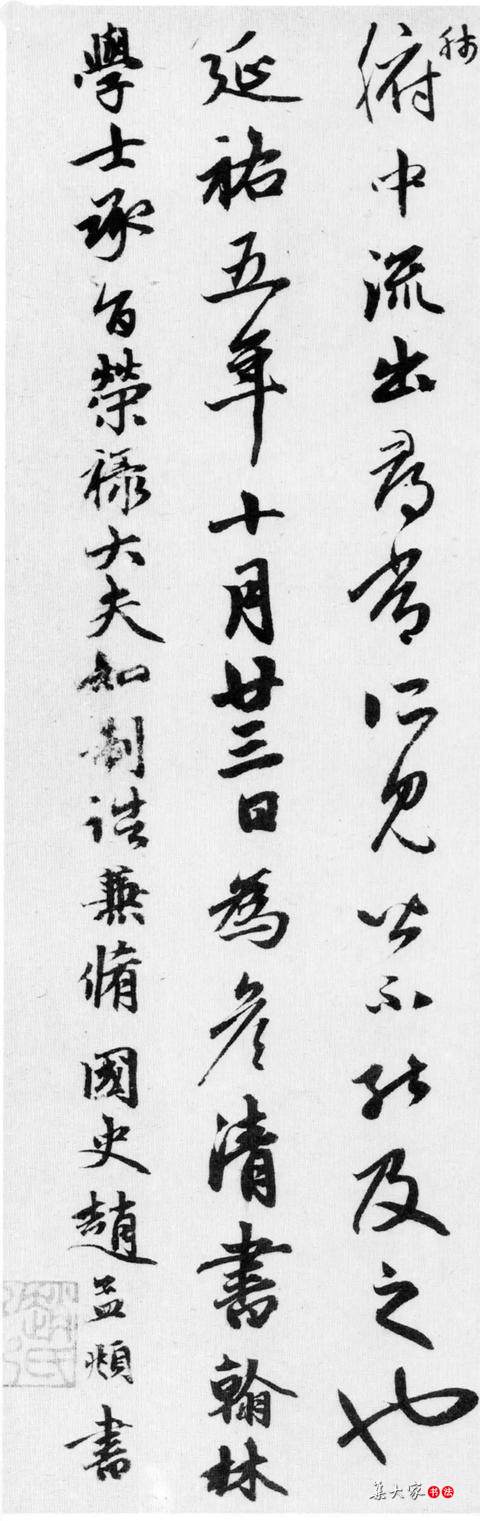 肺
腑中流出尋常所見皆不能及之也
延祐五年十月廿三日為彥清書翰林
學士承旨榮祿大夫知制誥兼脩國史趙孟頫書
集大家书法